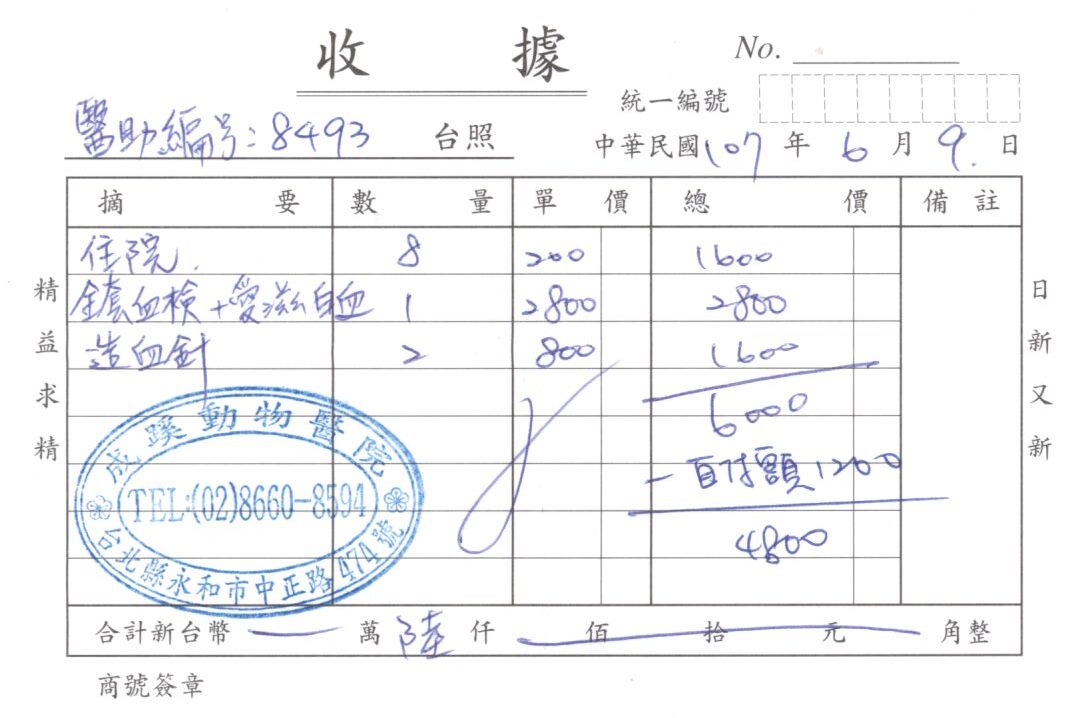 收據
No.
統一編號
醫助編號:8493 台照
中華民國107年6月9日
摘要 數量 單價 總價 備註
住院. 8 200 1600
全套血檢+愛滋白血 1 2800 2800
造血針 2 800 1600
6000
-自付額1200
4800
合計新台幣 萬陸仟 佰 拾 元 角整
商號簽章
精益求精
日新又新
成蹊動物醫院
TEL:(02)8660-8594
台北縣永和市中正路474號